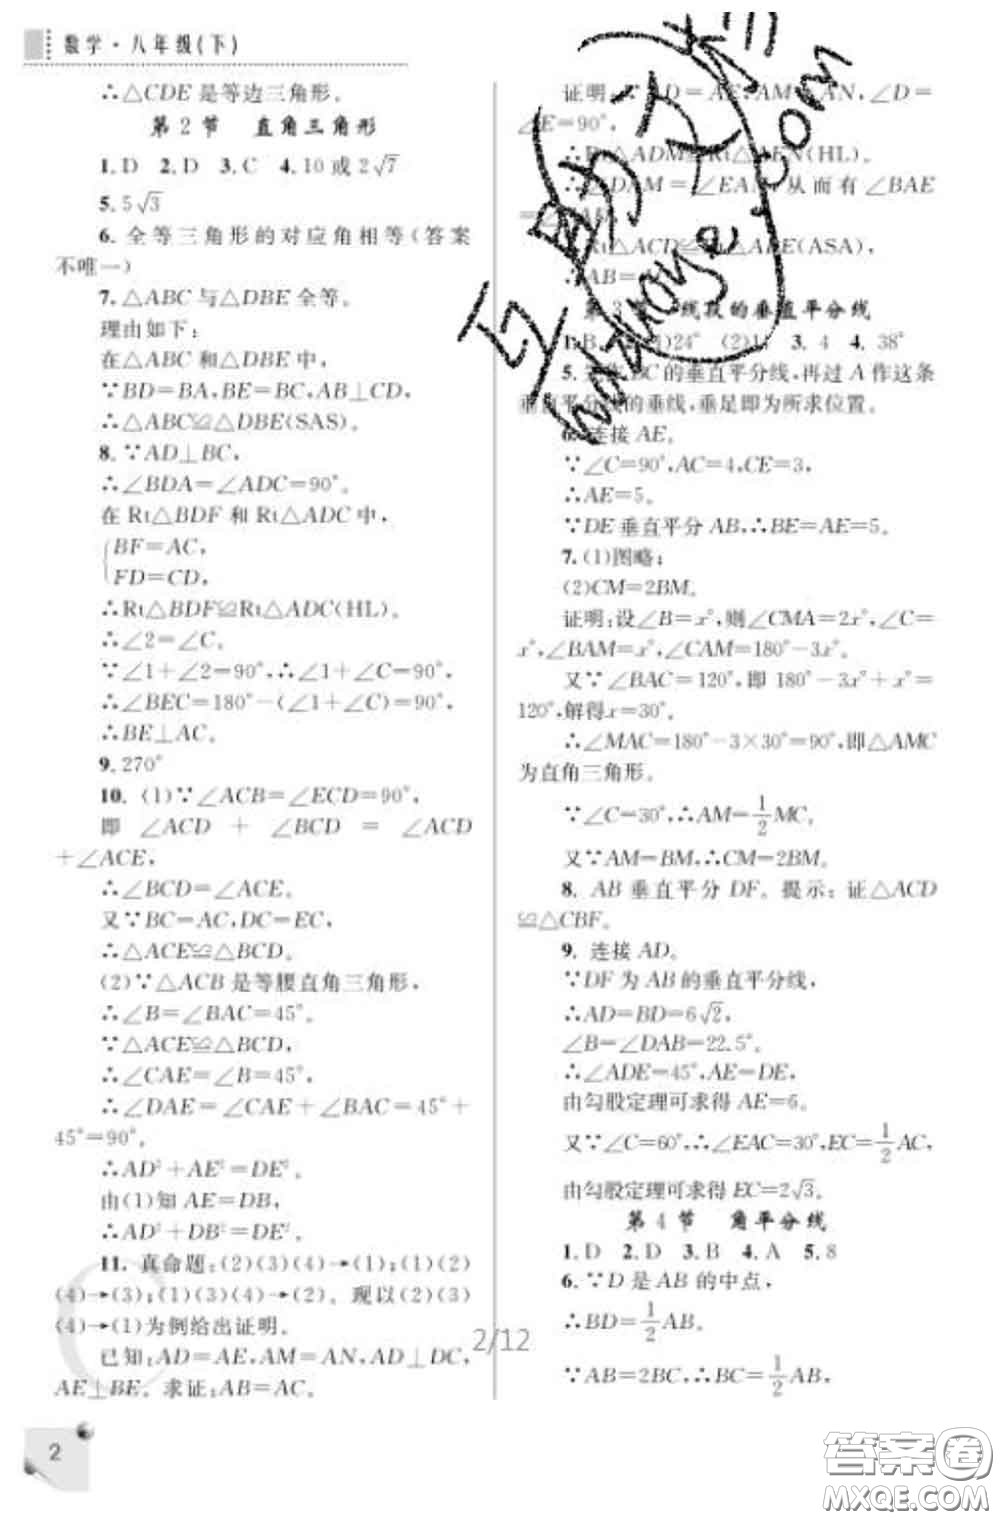 数学·八年级(下)
∴△CDE是等边三角形。
第2节 直角三角形
1. D 2. D 3. C 4. 10或2√7
5. 5√3
6. 全等三角形的对应角相等(答案
不唯一)
7. △ABC与△DBE全等。
理由如下:
在△ABC和△DBE中,
∵BD=BA,BE=BC,AB⊥CD,
∴△ABC≌△DBE(SAS)。
8. ∵AD⊥BC,
∴∠BDA=∠ADC=90°。
在Rt△BDF和Rt△ADC中,
BF=AC,
FD=CD,
∴Rt△BDF≌Rt△ADC(HL)。
∴∠2=∠C。
∵∠1+∠2=90°,∴∠1+∠C=90°,
∴∠BEC=180°-(∠1+∠C)=90°,
∴BE⊥AC。
9. 270°
10. (1)∵∠ACB=∠ECD=90°,
即∠ACD+∠BCD=∠ACD
+∠ACE,
∴∠BCD=∠ACE。
又∵BC=AC,DC=EC,
∴△ACE≌△BCD。
(2)∵△ACB是等腰直角三角形,
∴∠B=∠BAC=45°。
∵△ACE≌△BCD,
∴∠CAE=∠B=45°,
∴∠DAE=∠CAE+∠BAC=45°+
45°=90°,
∴AD²+AE²=DE²。
由(1)知AE=DB,
∴AD²+DB²=DE²。
11. 真命题:(2)(3)(4)→(1);(1)(2)
(4)→(3);(1)(3)(4)→(2)。现以(2)(3)
(4)→(1)为例给出证明。
已知:AD=AE,AM=AN,AD⊥DC,
AE⊥BE。求证:AB=AC。
证明:∵AD=AE,AM=AN,∠D=
∠E=90°,
∴Rt△ADM≌Rt△AEN(HL)。
∴∠DAM=∠EAN,从而有∠BAE
Rt△ACD≌Rt△ABE(ASA),
∴AB=
第3节 线段的垂直平分线
1. B 2. (1)24° (2)1 3. 4 4. 38°
5. BC的垂直平分线,再过A作这条
垂直平分线的垂线,垂足即为所求位置。
6. 连接AE。
∵∠C=90°,AC=4,CE=3,
∴AE=5。
∵DE垂直平分AB,∴BE=AE=5。
7. (1)图略;
(2)CM=2BM。
证明:设∠B=x°,则∠CMA=2x°,∠C=
x°,∠BAM=x°,∠CAM=180°-3x°。
又∵∠BAC=120°,即180°-3x°+x°=
120°,解得x=30°。
∴∠MAC=180°-3×30°=90°,即△AMC
为直角三角形。
∵∠C=30°,∴AM=1/2MC,
又∵AM=BM,∴CM=2BM。
8. AB垂直平分DF。提示:证△ACD
≌△CBF。
9. 连接AD。
∵DF为AB的垂直平分线,
∴AD=BD=6√2,
∠B=∠DAB=22.5°。
∴∠ADE=45°,AE=DE,
由勾股定理可求得AE=6。
又∵∠C=60°,∴∠EAC=30°,EC=1/2AC,
由勾股定理可求得EC=2√3。
第4节 角平分线
1. D 2. D 3. B 4. A 5. 8
6. ∵D是AB的中点,
∴BD=1/2AB。
∵AB=2BC,∴BC=1/2AB,
2/12
2
互助文档
hduoye.com
答案圈
MXQE.COM